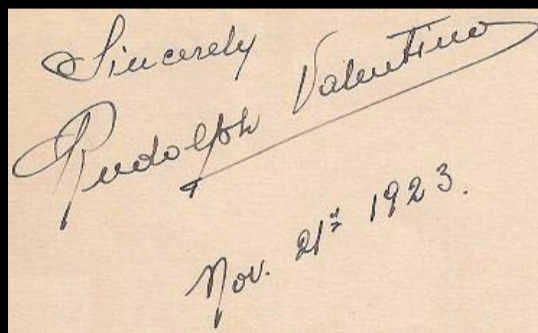 Sincerely
Rudolph Valentino
Nov. 21st 1923.